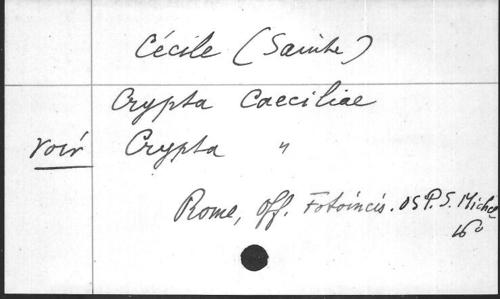 Cécile (Sainte)
Crypta Caeciliae
voir Crypta "
Rome, off. Fotoincis. OS P. S. Miche
16°